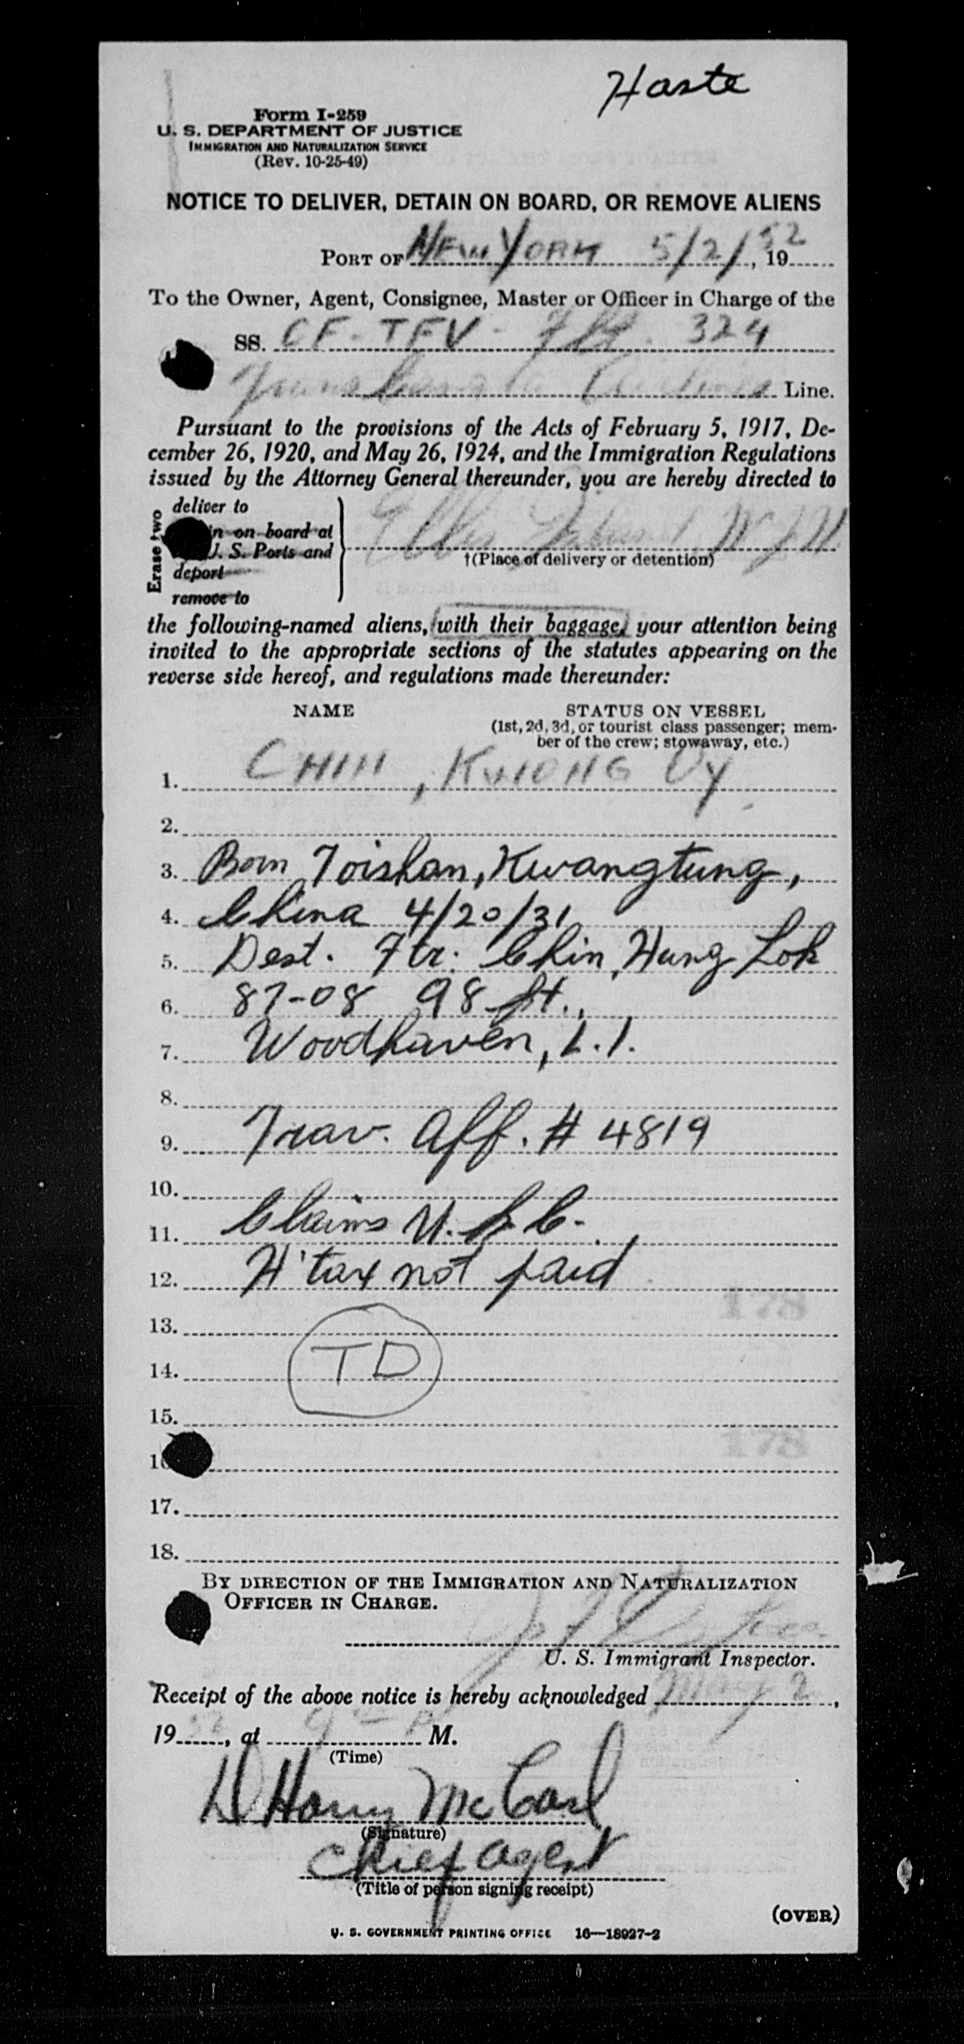 Haste
Form I-259
U. S. DEPARTMENT OF JUSTICE
IMMIGRATION AND NATURALIZATION SERVICE
(Rev. 10-25-49)
NOTICE TO DELIVER, DETAIN ON BOARD, OR REMOVE ALIENS
PORT OF New York 5/2/, 1952
To the Owner, Agent, Consignee, Master or Officer in Charge of the
SS. CF-TFV - Flt. 324
Line.
Pursuant to the provisions of the Acts of February 5, 1917, De-
cember 26, 1920, and May 26, 1924, and the Immigration Regulations
issued by the Attorney General thereunder, you are hereby directed to
Erase two
deliver to
in on board at
U. S. Ports and
deport
remove to
Ellis Island
†(Place of delivery or detention)
the following-named aliens, with their baggage, your attention being
invited to the appropriate sections of the statutes appearing on the
reverse side hereof, and regulations made thereunder:
NAME STATUS ON VESSEL
(1st, 2d, 3d, or tourist class passenger; mem-
ber of the crew; stowaway, etc.)
1. CHIN, KWONG Oy
2.
3. Born Toishan, Kwangtung,
4. China 4/20/31
5. Dest. Ftr: Chin, Hung Lok
6. 87-08 98 St.,
7. Woodhaven, L.I.
8.
9. Trav. Aff. # 4819
10.
11. Claims U.S.C.
12. H'tax not paid
13.
14. TD
15.
16
17.
18.
178
178
BY DIRECTION OF THE IMMIGRATION AND NATURALIZATION
OFFICER IN CHARGE.
U. S. Immigrant Inspector.
Receipt of the above notice is hereby acknowledged May 2,
1952, at 9 M.
(Time)
D Harry McCarl
(Signature)
Chief agent
(Title of person signing receipt)
(OVER)
U. S. GOVERNMENT PRINTING OFFICE 16—18927-2